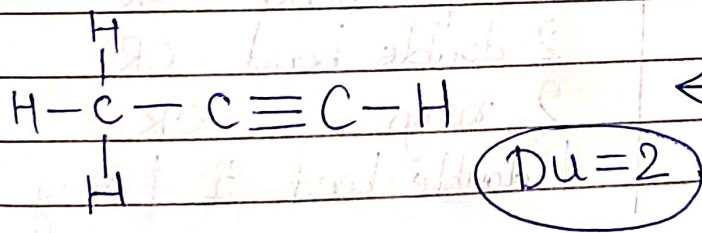 H
H-C-C≡C-H
H
DU=2